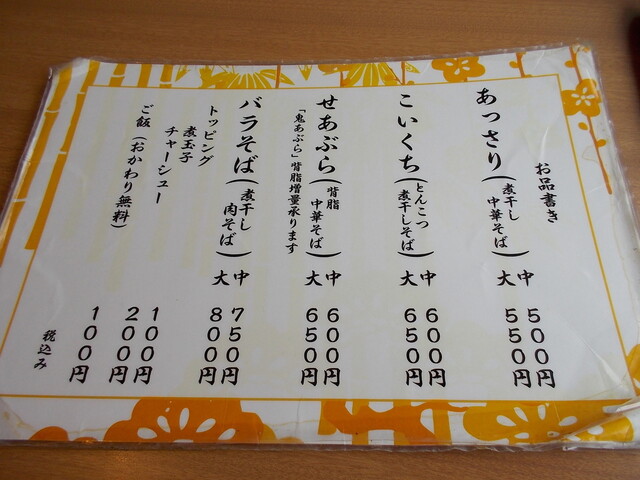 お品書き
あっさり(煮干し中華そば)中 500円
大 550円
こいくち(とんこつ煮干しそば)中 600円
大 650円
せあぶら(背脂中華そば)中 600円
大 650円
「鬼あぶら」背脂増量承ります
バラそば(煮干し肉そば)中 750円
大 800円
トッピング
煮玉子 100円
チャーシュー 200円
ご飯(おかわり無料) 100円
税込み